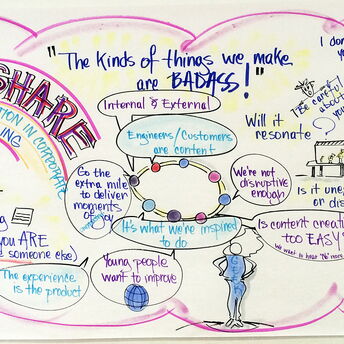 "The kinds of things we make
are BADASS!"
SHARE
TION IN CORPORATE
ING
Internal & External
Engineers/Customers
are content
Go the
extra mile
to deliver
moments
of joy
We're not
disruptive
enough
It's what we're inspired
to do
Young people
want to improve
The experience
is the product
ng
you ARE
someone else)
I don
yo
Be careful
about
you
Will it
resonate
Is it une
or dis
Is content creati
too EASY?
we want to hear "No" more